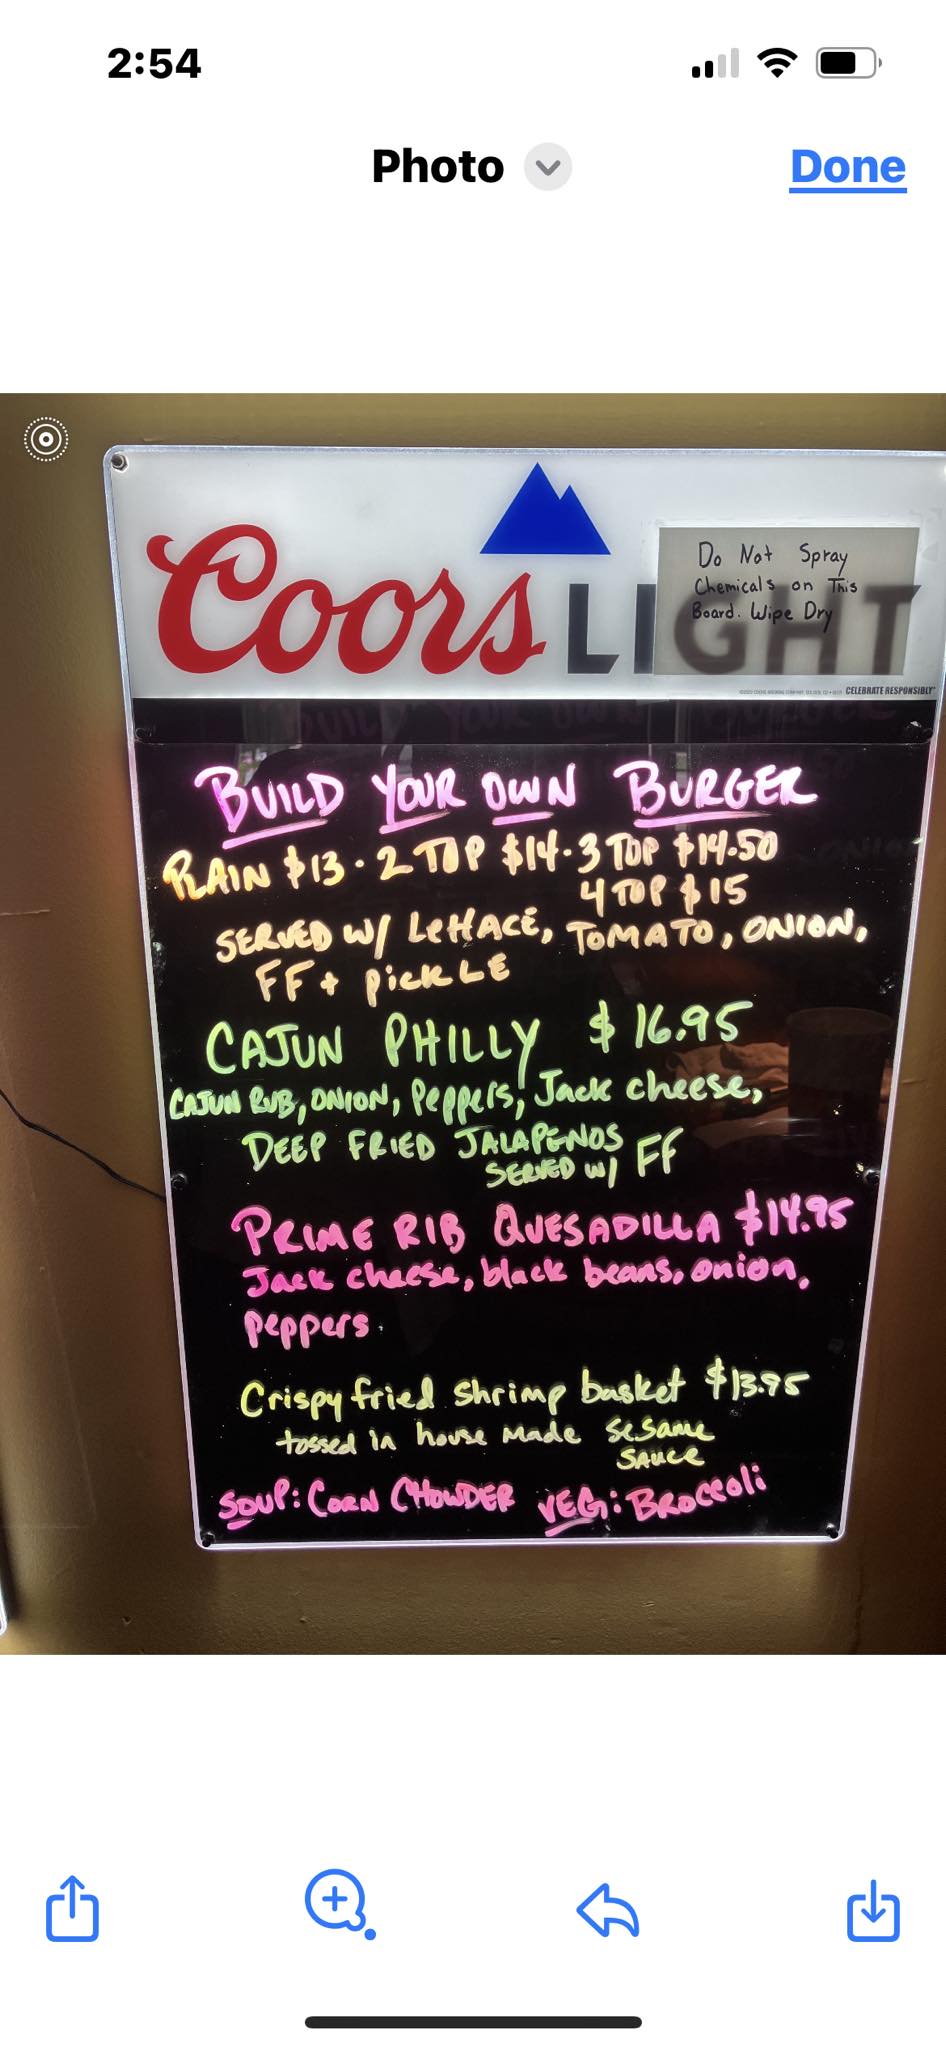 2:54
Photo
Done
Coors LIGHT
Do Not Spray
Chemicals on This
Board. Wipe Dry
CELEBRATE RESPONSIBLY
BUILD YOUR OWN BURGER
PLAIN $13 · 2 TOP $14 · 3 TOP $14.50
4 TOP $15
SERVED W/ LettACE, TOMATO, ONION,
FF + PickLE
CAJUN PHILLY $16.95
CAJUN RUB, ONION, Peppers, Jack cheese,
DEEP FRIED JALAPENOS
SERVED W/ FF
PRIME RIB QUESADILLA $14.95
Jack cheese, black beans, onion,
peppers.
Crispy fried shrimp basket $13.95
tossed in house made sesame
SAUCE
SOUP: CORN CHOWDER VEG: BROCCOLi